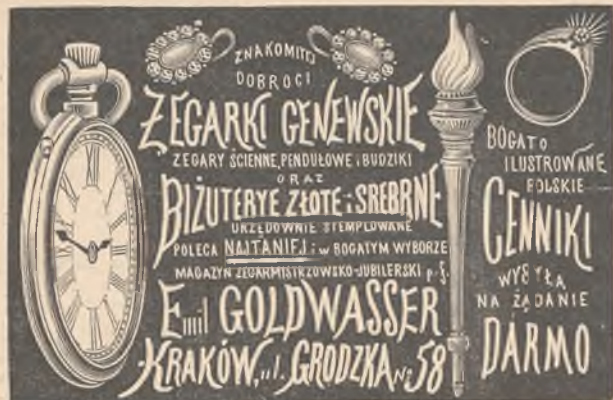 ZNAKOMITEJ
DOBROCI
ZEGARKI GENEWSKIE
ZEGARY ŚCIENNE, PENDUŁOWE i BUDZIKI
ORAZ
BIŻUTERYE ZŁOTE i SREBRNE
URZĘDOWNIE STEMPLOWANE
POLECA NAJTANIEJ i w BOGATYM WYBORZE
MAGAZYN ZEGARMISTRZOWSKO-JUBILERSKI p. f.
Emil GOLDWASSER
KRAKÓW, ul. GRODZKA No 58
BOGATO
ILUSTROWANE
POLSKIE
CENNIKI
WYSYŁA
NA ŻĄDANIE
DARMO